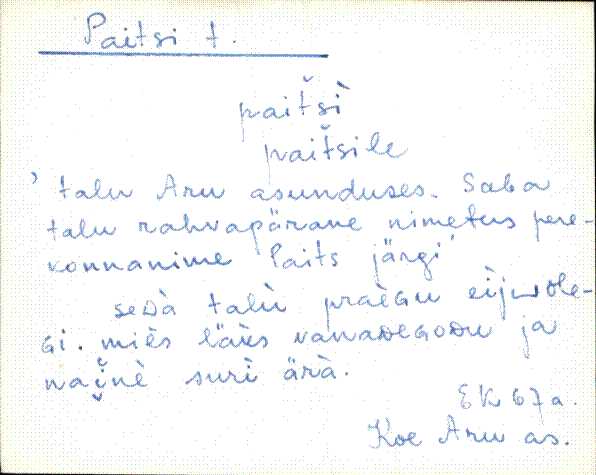 Paitsi t.
paitšì
paitšile
'talu Aru asunduses. Saba
talu rahvapärane nimetus pere-
konnanime Paits järgi'
seDà talù praèGu eìjᴗole-
Gi. miès lä̀ks vanaDeGoDu ja
nai̯nè surì ärà.
EK 67 a.
Koe Aru as.